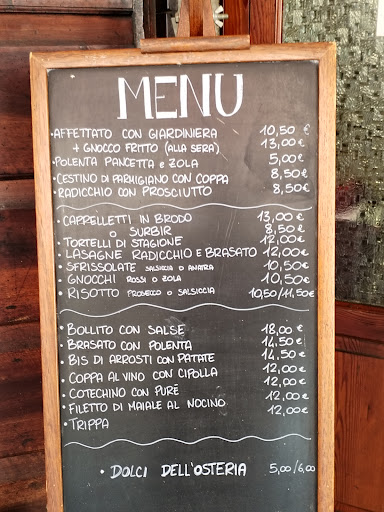 MENU
• AFFETTATO CON GIARDINIERA 10,50 €
+ GNOCCO FRITTO (ALLA SERA) 13,00 €
• POLENTA PANCETTA E ZOLA 5,00 €
• CESTINO DI PARMIGIANO CON COPPA 8,50 €
• RADICCHIO CON PROSCIUTTO 8,50 €
• CAPPELLETTI IN BRODO 13,00 €
O SURBIR 8,50 €
• TORTELLI DI STAGIONE 12,00 €
• LASAGNE RADICCHIO E BRASATO 12,00 €
• SFRISSOLATE SALSICCIA O ANATRA 10,50 €
• GNOCCHI ROSSI O ZOLA 10,50 €
• RISOTTO PROSECCO O SALSICCIA 10,50/11,50 €
• BOLLITO CON SALSE 18,00 €
• BRASATO CON POLENTA 14,50 €
• BIS DI ARROSTI CON PATATE 14,50 €
• COPPA AL VINO CON CIPOLLA 12,00 €
• COTECHINO CON PURÈ 12,00 €
• FILETTO DI MAIALE AL NOCINO 12,00 €
• TRIPPA 12,00 €
• DOLCI DELL'OSTERIA 5,00/6,00